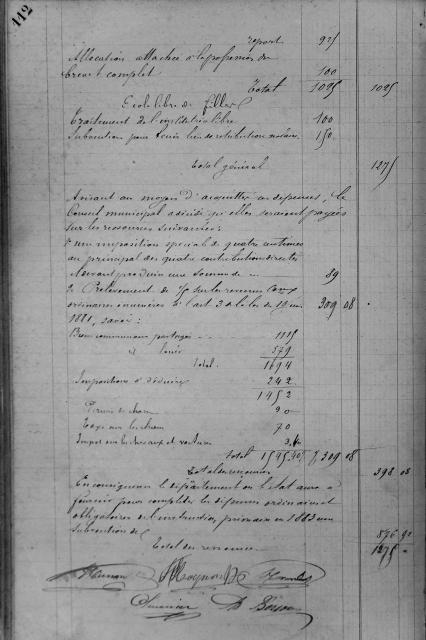 112
report 925
Allocation attachée à la possession du
brevet complet 100
Total 1025 1025
Ecole libre de filles
Traitement de l'institutrice libre 100
Subvention pour tenir lieu de rétribution scolaire 150
Total général 1275
Avisant au moyen d'acquitter ces dépenses, le
Conseil municipal a décidé qu'elles seraient payées
sur les ressources suivantes :
1° une imposition spéciale de quatre centimes
au principal des quatre contributions directes
devant produire une somme de 89
2° Prélèvement de sur les revenus
ordinaires énumérés à l'art 3 de la loi de 309 08
1881, savoir :
Biens communaux partagés 1115
id loués 579
Total 1694
Impositions à déduire 242
1452
90
Taxe sur les chiens 70
Impôt sur les chevaux et voitures
Total 1545 309 08
Total des ressources 398 08
En conséquence le département ou l'état aura à
fournir pour compléter les dépenses ordinaires et
obligatoires de l'instruction primaire en 1883 une
subvention de 876 92
Total des ressources 1275